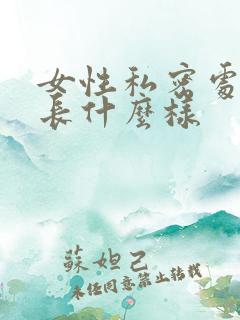 女性私密處
長什麼樣
蘇妲己
未經同意禁止轉載